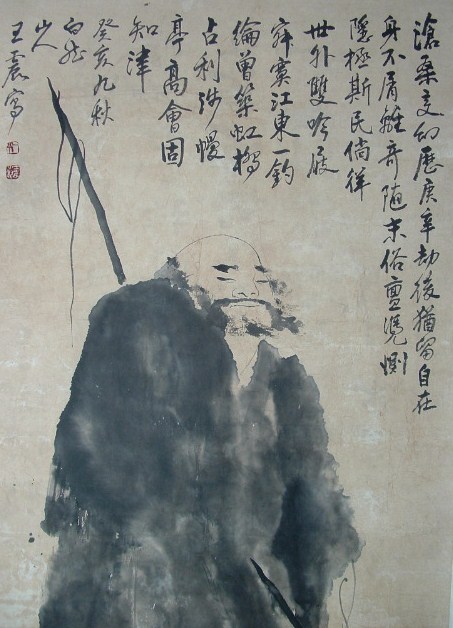 滄桑变幻歷庚辛劫後猶留自在
身不屑離奇随末俗亶凴惻
隱極斯民倘徉
世外雙吟屐
寂寞江東一釣
綸曾築虹橋
占利涉幔
亭高會固
知津
癸亥九秋
白龍
山人
王震寫